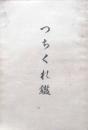 つちくれ鑑